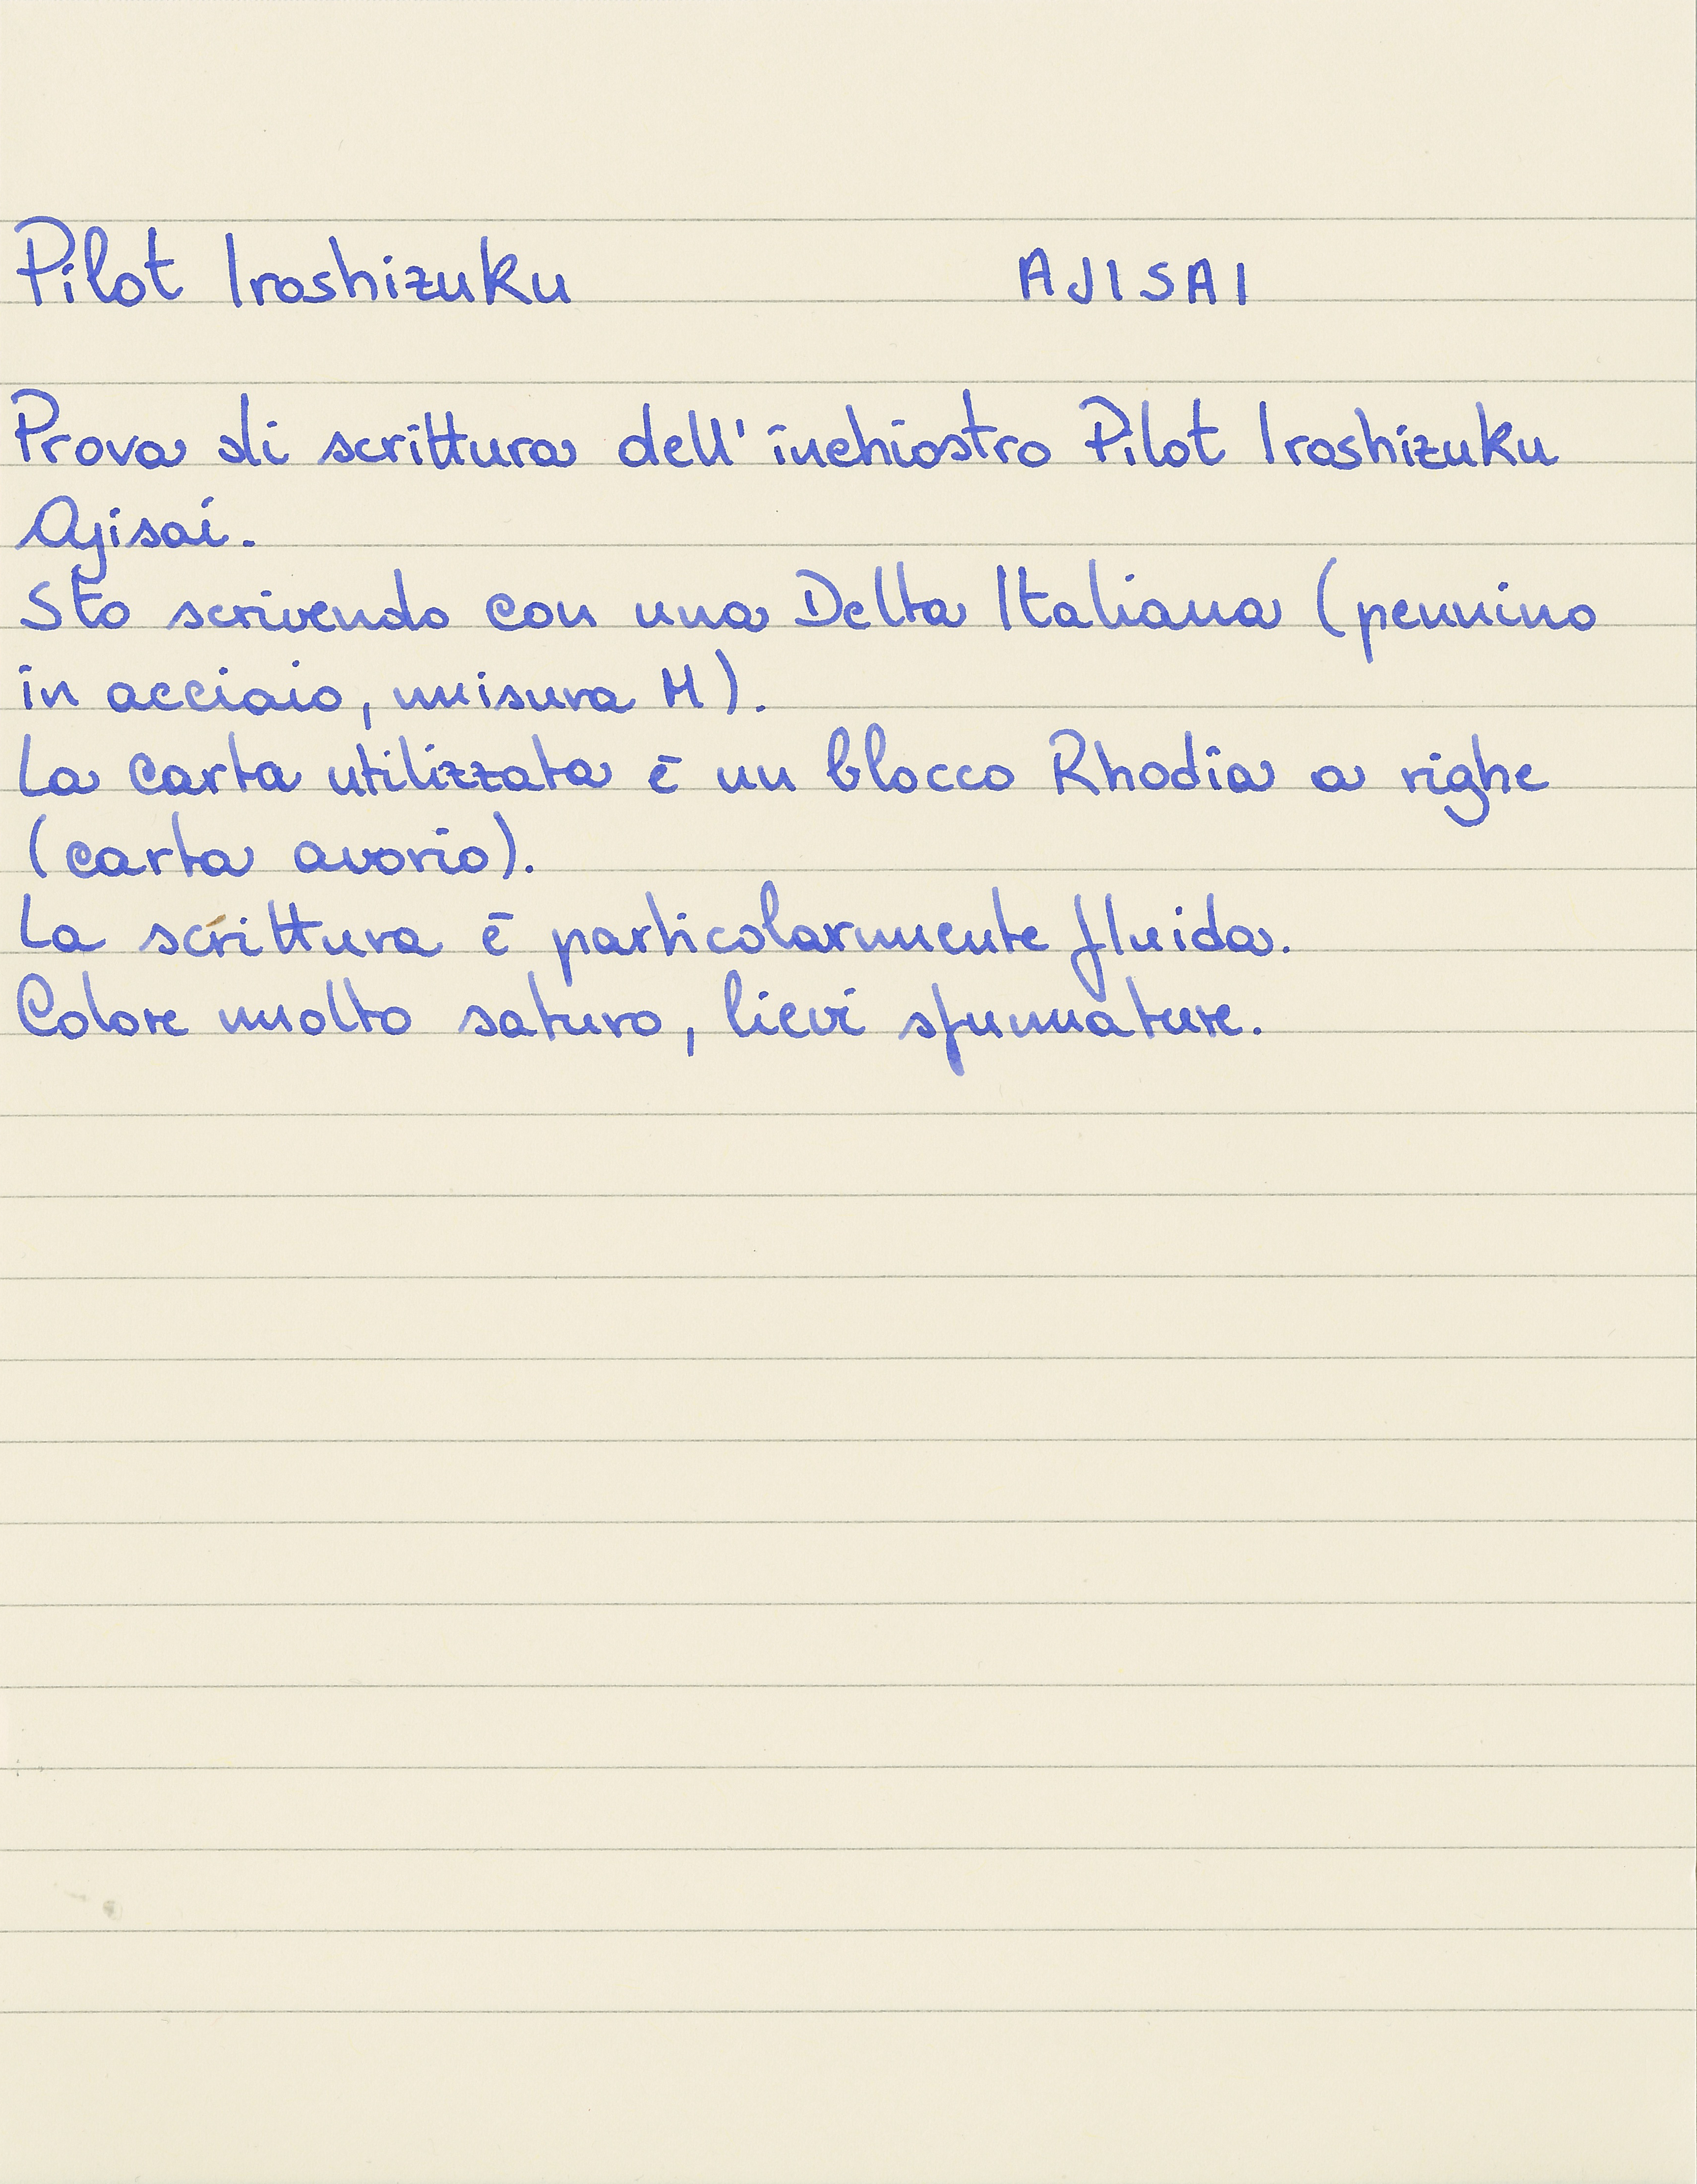 Pilot Iroshizuku AJISAI
Prova di scrittura dell'inchiostro Pilot Iroshizuku
Ajisai.
Sto scrivendo con una Delta Italiana (pennino
in acciaio, misura M).
La carta utilizzata è un blocco Rhodia a righe
(carta avorio).
La scrittura è particolarmente fluida.
Colore molto saturo, lievi sfumature.